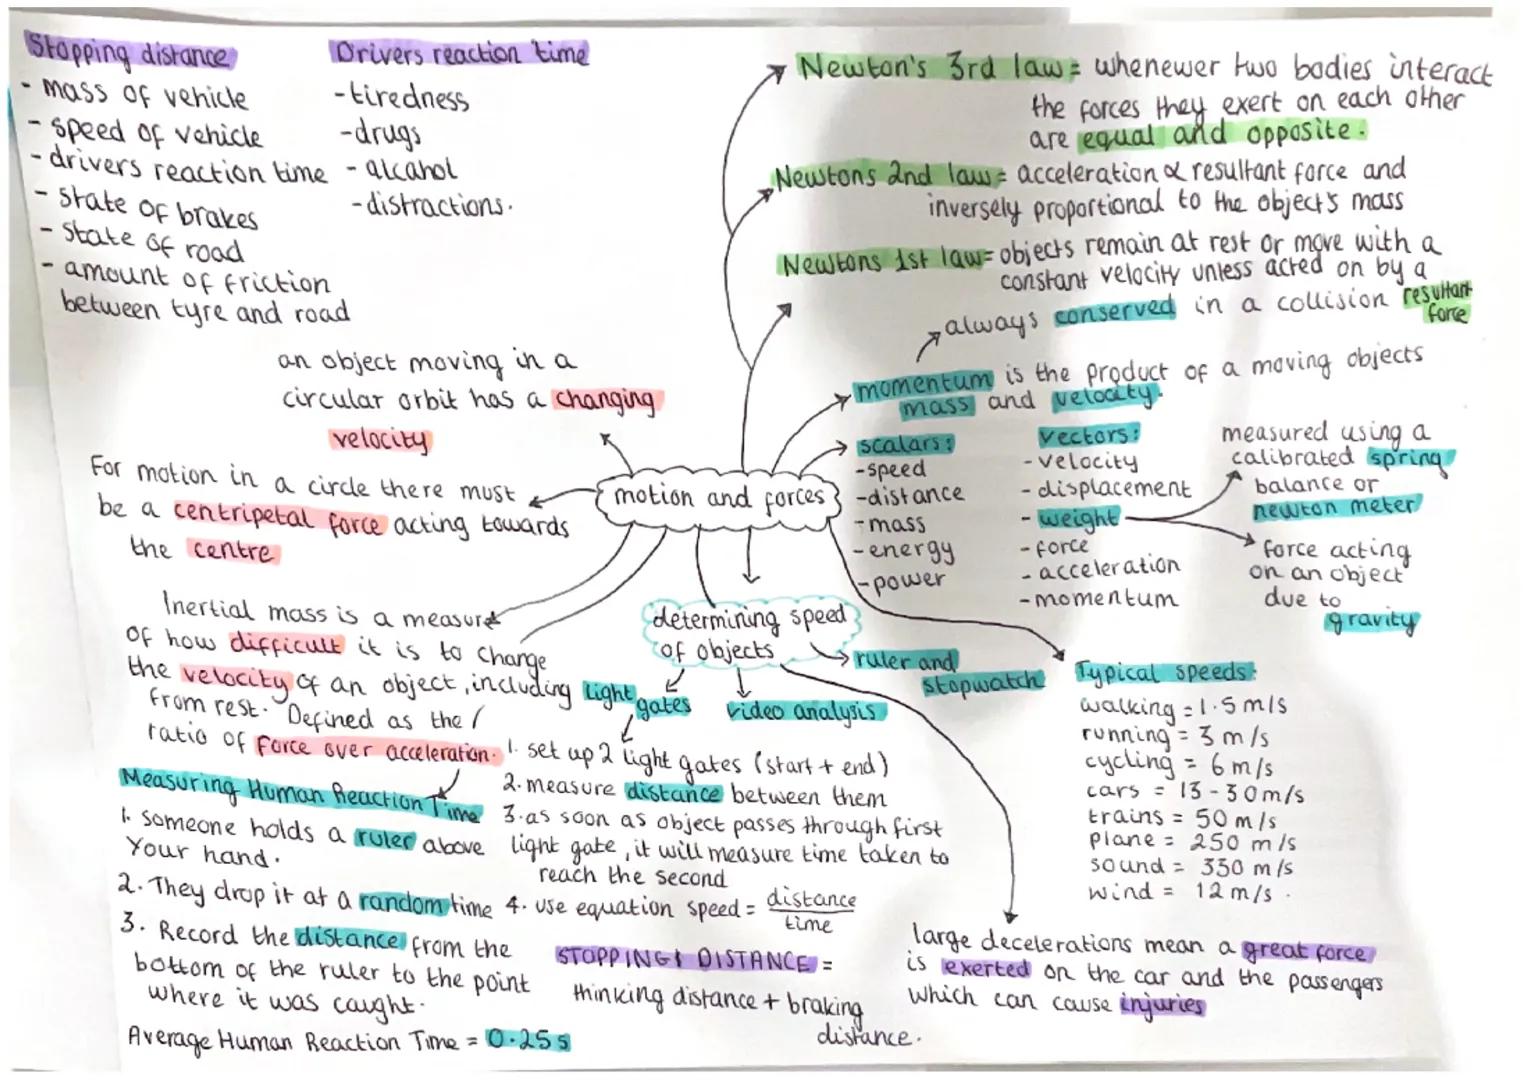 Stopping distance
- mass of vehicle
- speed of vehicle
- drivers reaction time
- state of brakes
- state of road
- amount of friction
between tyre and road
Drivers reaction time
- tiredness
- drugs
- alcahol
- distractions.
Newton's 3rd law = whenewer two bodies interact
the forces they exert on each other
are equal and opposite.
Newtons 2nd law = acceleration ∝ resultant force and
inversely proportional to the object's mass
Newtons 1st law = objects remain at rest or move with a
constant velocity unless acted on by a
resultant
force
always conserved in a collision
momentum is the product of a moving objects
mass and velocity.
an object moving in a
circular orbit has a changing
velocity
For motion in a circle there must
be a centripetal force acting towards
the centre
motion and forces
scalars:
- speed
- distance
- mass
- energy
- power
vectors:
- velocity
- displacement
- weight
- force
- acceleration
- momentum
measured using a
calibrated spring
balance or
newton meter
force acting
on an object
due to
gravity
Inertial mass is a measure
of how difficult it is to change
the velocity of an object, including
from rest. Defined as the
ratio of force over acceleration.
determining speed
of objects
ruler and
stopwatch
light
gates
video analysis
1. set up 2 light gates (start + end)
2. measure distance between them
3. as soon as object passes through first
light gate, it will measure time taken to
reach the second
4. use equation speed = distance
time
Measuring Human Reaction Time
1. someone holds a ruler above
Your hand.
2. They drop it at a random time
3. Record the distance from the
bottom of the ruler to the point
where it was caught.
Average Human Reaction Time = 0.25s
STOPPING DISTANCE =
thinking distance + braking
distance.
Typical speeds:
walking = 1.5 m/s
running = 3 m/s
cycling = 6 m/s
cars = 13-30 m/s
trains = 50 m/s
plane = 250 m/s
sound = 330 m/s
wind = 12 m/s.
large decelerations mean a great force
is exerted on the car and the passengers
which can cause injuries